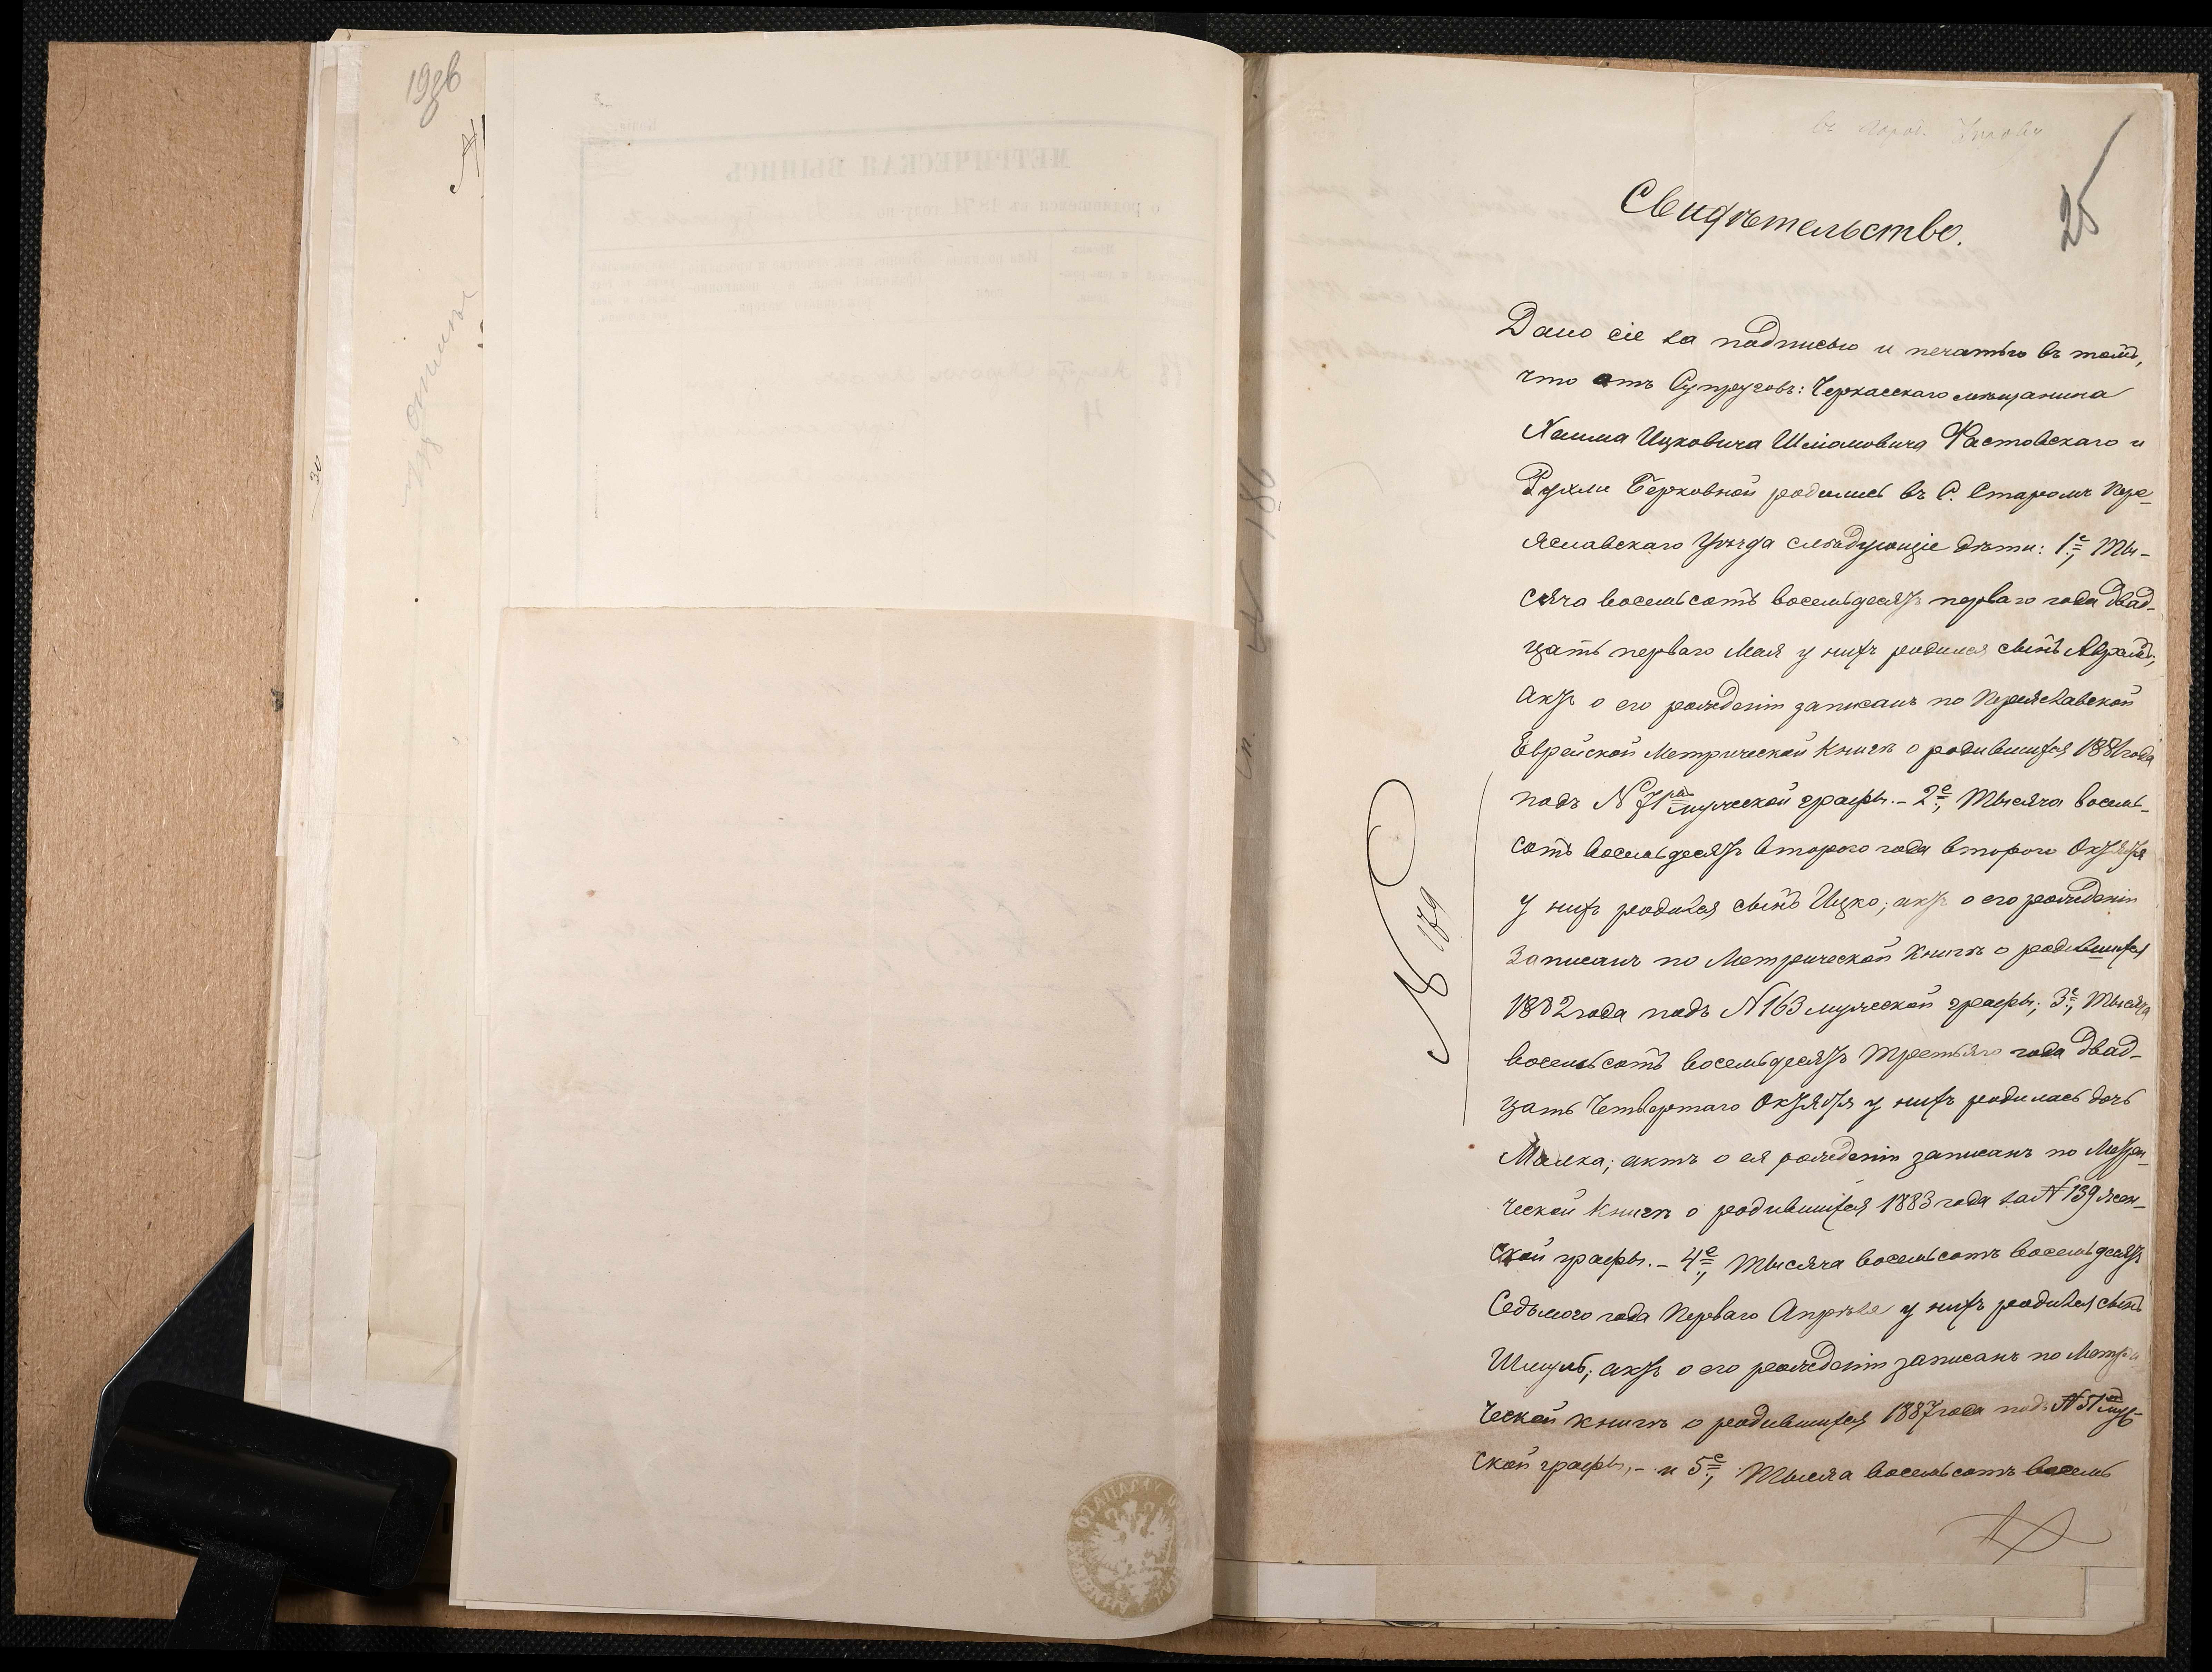 25
Свидѣтельство.
Дано сіе за подписью и печатью въ томъ,
что отъ Супруговъ: Черкасскаго мѣщанина
Хаима Ицковича Шліомовича Фастовскаго и
Рухли Берковной родились въ С. Старомъ Пере-
яславскаго Уѣзда слѣдующіе дѣти: 1е, Ты-
сяча восемьсотъ восемьдесятъ перваго года двад-
цать перваго Мая у нихъ родился сынъ Абрамъ;
актъ о его рожденіи записанъ по Переяславской
Еврейской Метрической Книгѣ о родившихся 1881 года
подъ № 71 мужеской графы. - 2е, Тысяча восемь-
сотъ восемьдесятъ второго года второго Октября
у нихъ родился сынъ Ицко; актъ о его рожденіи
записанъ по Метрической Книгѣ о родившихся
1882 года подъ № 163 мужеской графы; 3е, Тысяча
восемьсотъ восемьдесятъ третьяго года двад-
цать Четвертаго Октября у нихъ родилась дочь
Малка; актъ о ея рожденіи записанъ по Метри-
ческой Книгѣ о родившихся 1883 года за № 139 жен-
ской графы. - 4е, Тысяча восемьсотъ восемьдесятъ
Седьмого года Перваго Апрѣля у нихъ родился сынъ
Шмуль; актъ о его рожденіи записанъ по Метри
ческой книгѣ о родившихся 1887 года подъ № 51 муж-
ской графы, - и 5е, Тысяча восемьсотъ восемь
№ 179